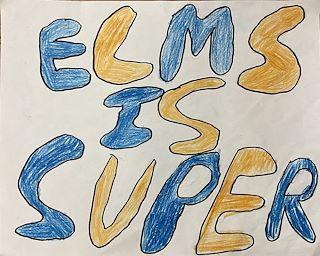 ELMS
IS
SUPER